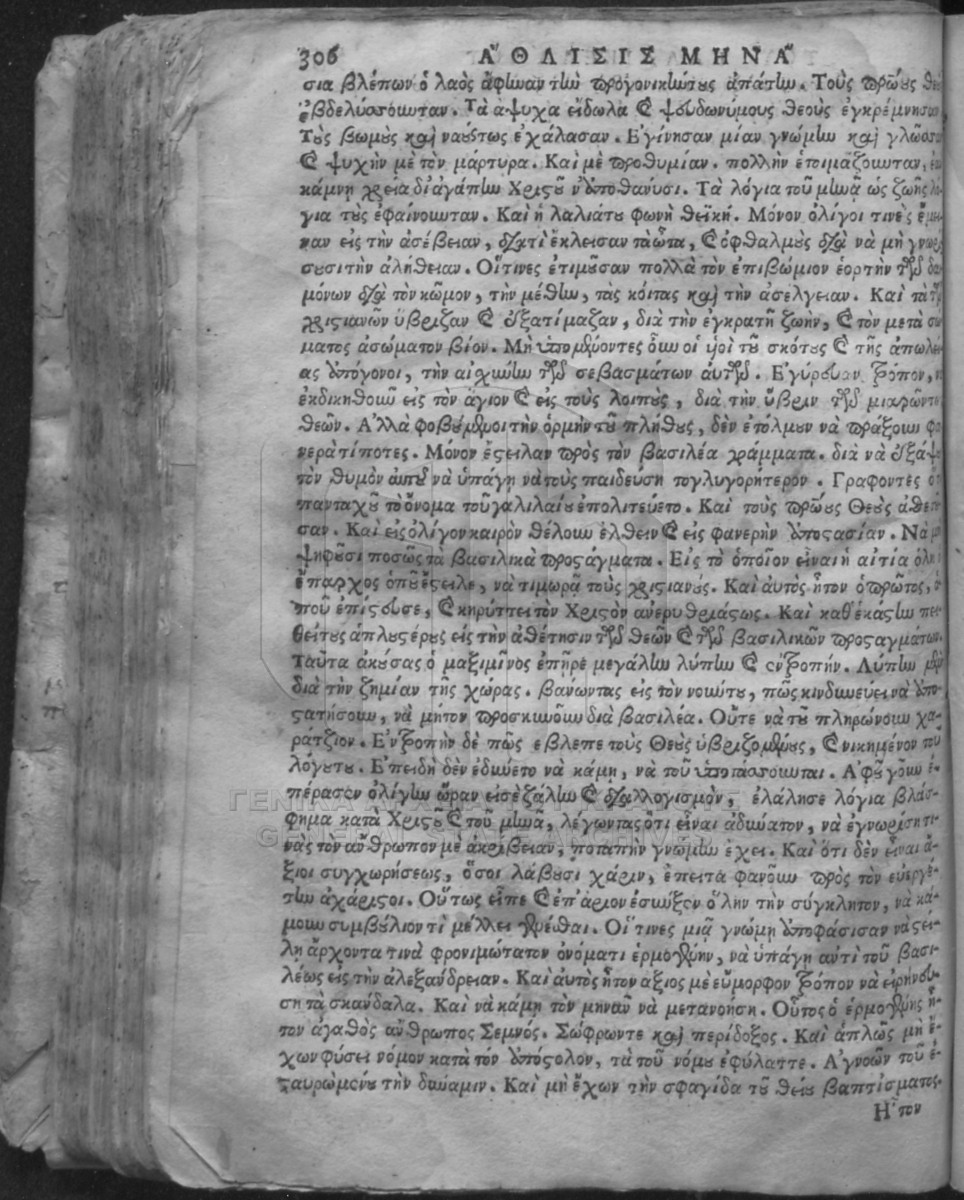 306 ΑΘΛΙΣΙΣ ΜΗΝΑ
σια βλέπων ὁ λαὸς ἄφιωαν τὼ προγονικώτους ἀπάτω. Τοὺς πρώους
ἐβδελύσσοιωταν. Τὰ ἄψυχα εἴδωλα καὶ ψευδωνύμους θεοὺς ἐγκρέμνησαν
Τοὺς βωμοὺς καὶ ναούς τως ἐχάλασαν. Ἐγίνησαν μίαν γνώμιω καὶ
καὶ ψυχὴν μὲ τὸν μάρτυρα. Καὶ μὲ προθυμίαν. πολλὴν ἑτοιμάζοιωταν,
κάμνη χρεία δι ἀγάπιω Χριστοῦ ν ἀποθανοῦσι. Τὰ λόγια τοῦ μιωᾶ ὡς ζωῆς
για τοὺς ἐφαίνοιωταν. Καὶ ἡ λαλιά του φωνὴ θεϊκή. Μόνον ὀλίγοι τινὲς
ναν εἰς τὴν ἀσέβειαν, διατὶ ἔκλεισαν τὰ ὦτα, καὶ ὀφθαλμοὺς διὰ νὰ μὴ
σουσι τὴν ἀλήθειαν. Οἵτινες ἐτιμοῦσαν πολλὰ τὸν ἐπιβώμιον ἑορτὴν τῶν
μόνων διὰ τὸν κῶμον, τὴν μέθιω, τὰς κοίτας καὶ τὴν ἀσέλγειαν. Καὶ τὰ
χριστιανῶν ὕβριζαν καὶ ἐξατίμαζαν, διὰ τὴν ἐγκρατῆ ζωὴν, καὶ τὸν μετὰ
ματος ἀσώματον βίον. Μὴ ὑπομένοντες οἱ υἱοὶ τοῦ σκότους καὶ τῆς
ας ἀπόγονοι, τὴν αἰχιώιω τῶν σεβασμάτων αὐτῶν. Ἐγύρευαν τρόπον,
ἐκδικηθοιῶ εἰς τὸν ἅγιον καὶ εἰς τοὺς λοιποὺς, διὰ τὴν ὕβριν τῶν
θεῶν. Ἀλλὰ φοβούμενοι τὴν ὁρμὴν τοῦ πλήθους, δὲν ἐτόλμουν νὰ πράξοιω
νερὰ τίποτες. Μόνον ἔστειλαν πρὸς τὸν βασιλέα γράμματα. διὰ νὰ
τὸν θυμὸν νὰ ὑπάγη νὰ τοὺς παιδεύση τογλυγορήτερον. Γράφοντες
πανταχοῦ τὸ ὄνομα τοῦ γαλιλαίου ἐπολιτεύετο. Καὶ τοὺς πρώους Θεοὺς
σαν. Καὶ εἰς ὀλίγον καιρὸν θέλοιω ἐλθεῖν καὶ εἰς φανερὴν ἀποστασίαν. Νὰ
ψηφοῦσι ποσῶς τὰ βασιλικὰ προστάγματα. Εἰς τὸ ὁποῖον εἶναι ἡ αἰτία
ἔπαρχος ὁποῦ ἔστειλε, νὰ τιμωρᾶ τοὺς χριστιανούς. Καὶ αὐτὸς ἦτον ὁ πρῶτος,
ποῦ ἐπίστευσε, καὶ κηρύττει τὸν Χριστὸν ἀνερυθριάστως. Καὶ καθ ἑκάστιω
θει τοὺς ἁπλουστέρους εἰς τὴν ἀθέτησιν τῶν θεῶν καὶ τῶν βασιλικῶν προσταγμάτων.
Ταῦτα ἀκούσας ὁ μαξιμῖνος ἐπῆρε μεγάλιω λύπιω καὶ ἐντροπήν. Λύπιω μὲν
διὰ τὴν ζημίαν τῆς χώρας. βάνωντας εἰς τὸν νοιώ του, πῶς κινδιωεύει νὰ ἀπο-
στατήσοιω, νὰ μήτον προσκιωοιῶ διὰ βασιλέα. Οὔτε νὰ τοῦ πληρώνοιω χα-
ράτζιον. Ἐντροπὴν δὲ πῶς ἔβλεπε τοὺς Θεοὺς ὑβριζομένους, καὶ νικημένον τοῦ
λόγου του. Ἐπειδὴ δὲν ἐδιώετο νὰ κάμη, νὰ τοῦ ὑποτάσσοιωται. Ἀφοῦ γοιῶ ἐ-
πέρασεν ὀλίγιω ὥραν εἰς ζάλιω καὶ διαλλογισμὸν, ἐλάλησε λόγια βλάσ-
φημα κατὰ Χριστοῦ καὶ τοῦ μιωᾶ, λέγωντας ὅτι εἶναι ἀδιώατον, νὰ ἐγνωρίση τι-
νὰς τὸν ἄνθρωπον μὲ ἀκρίβειαν, ποταπὴν γνώμιω ἔχει. Καὶ ὅτι δὲν εἶναι ἄ-
ξιοι συγχωρήσεως, ὅσοι λάβουσι χάριν, ἔπειτα φανοιῶ πρὸς τὸν εὐεργέ-
τιω ἀχάριστοι. Οὕτως εἶπε καὶ ἐπ ἄριον ἐσιώξεν ὅλην τὴν σύγκλητον, νὰ κά-
μοιω συμβούλιον τί μέλλει γενέσθαι. Οἵτινες μιᾶ γνώμη ἀποφάσισαν νὰ στεί-
λη ἄρχοντα τινὰ φρονιμώτατον ὀνόματι ἑρμογένην, νὰ ὑπάγη ἀντὶ τοῦ βασι-
λέως εἰς τὴν ἀλεξάνδρειαν. Καὶ αὐτὸς ἦτον ἄξιος μὲ εὔμορφον τρόπον νὰ εἰρηνεύ-
ση τὰ σκάνδαλα. Καὶ νὰ κάμη τὸν μηνᾶν νὰ μετανοήση. Οὗτος ὁ ἑρμογένης ἦ-
τον ἀγαθὸς ἄνθρωπος Σεμνός. Σώφρωντε καὶ περίδοξος. Καὶ ἁπλῶς μὴ ἔ-
χων φύσει νόμον κατὰ τὸν ἀπόστολον, τὰ τοῦ νόμου ἐφύλαττε. Ἀγνοῶν τοῦ ἐ-
σταυρωμένου τὴν δύναμιν. Καὶ μὴ ἔχων τὴν σφαγίδα τοῦ θείου βαπτίσματος.
Ἦτον
ΓΕΝΙΚΑ ΑΡΧΕΙΑ
GENERAL STATE ARCHIVES